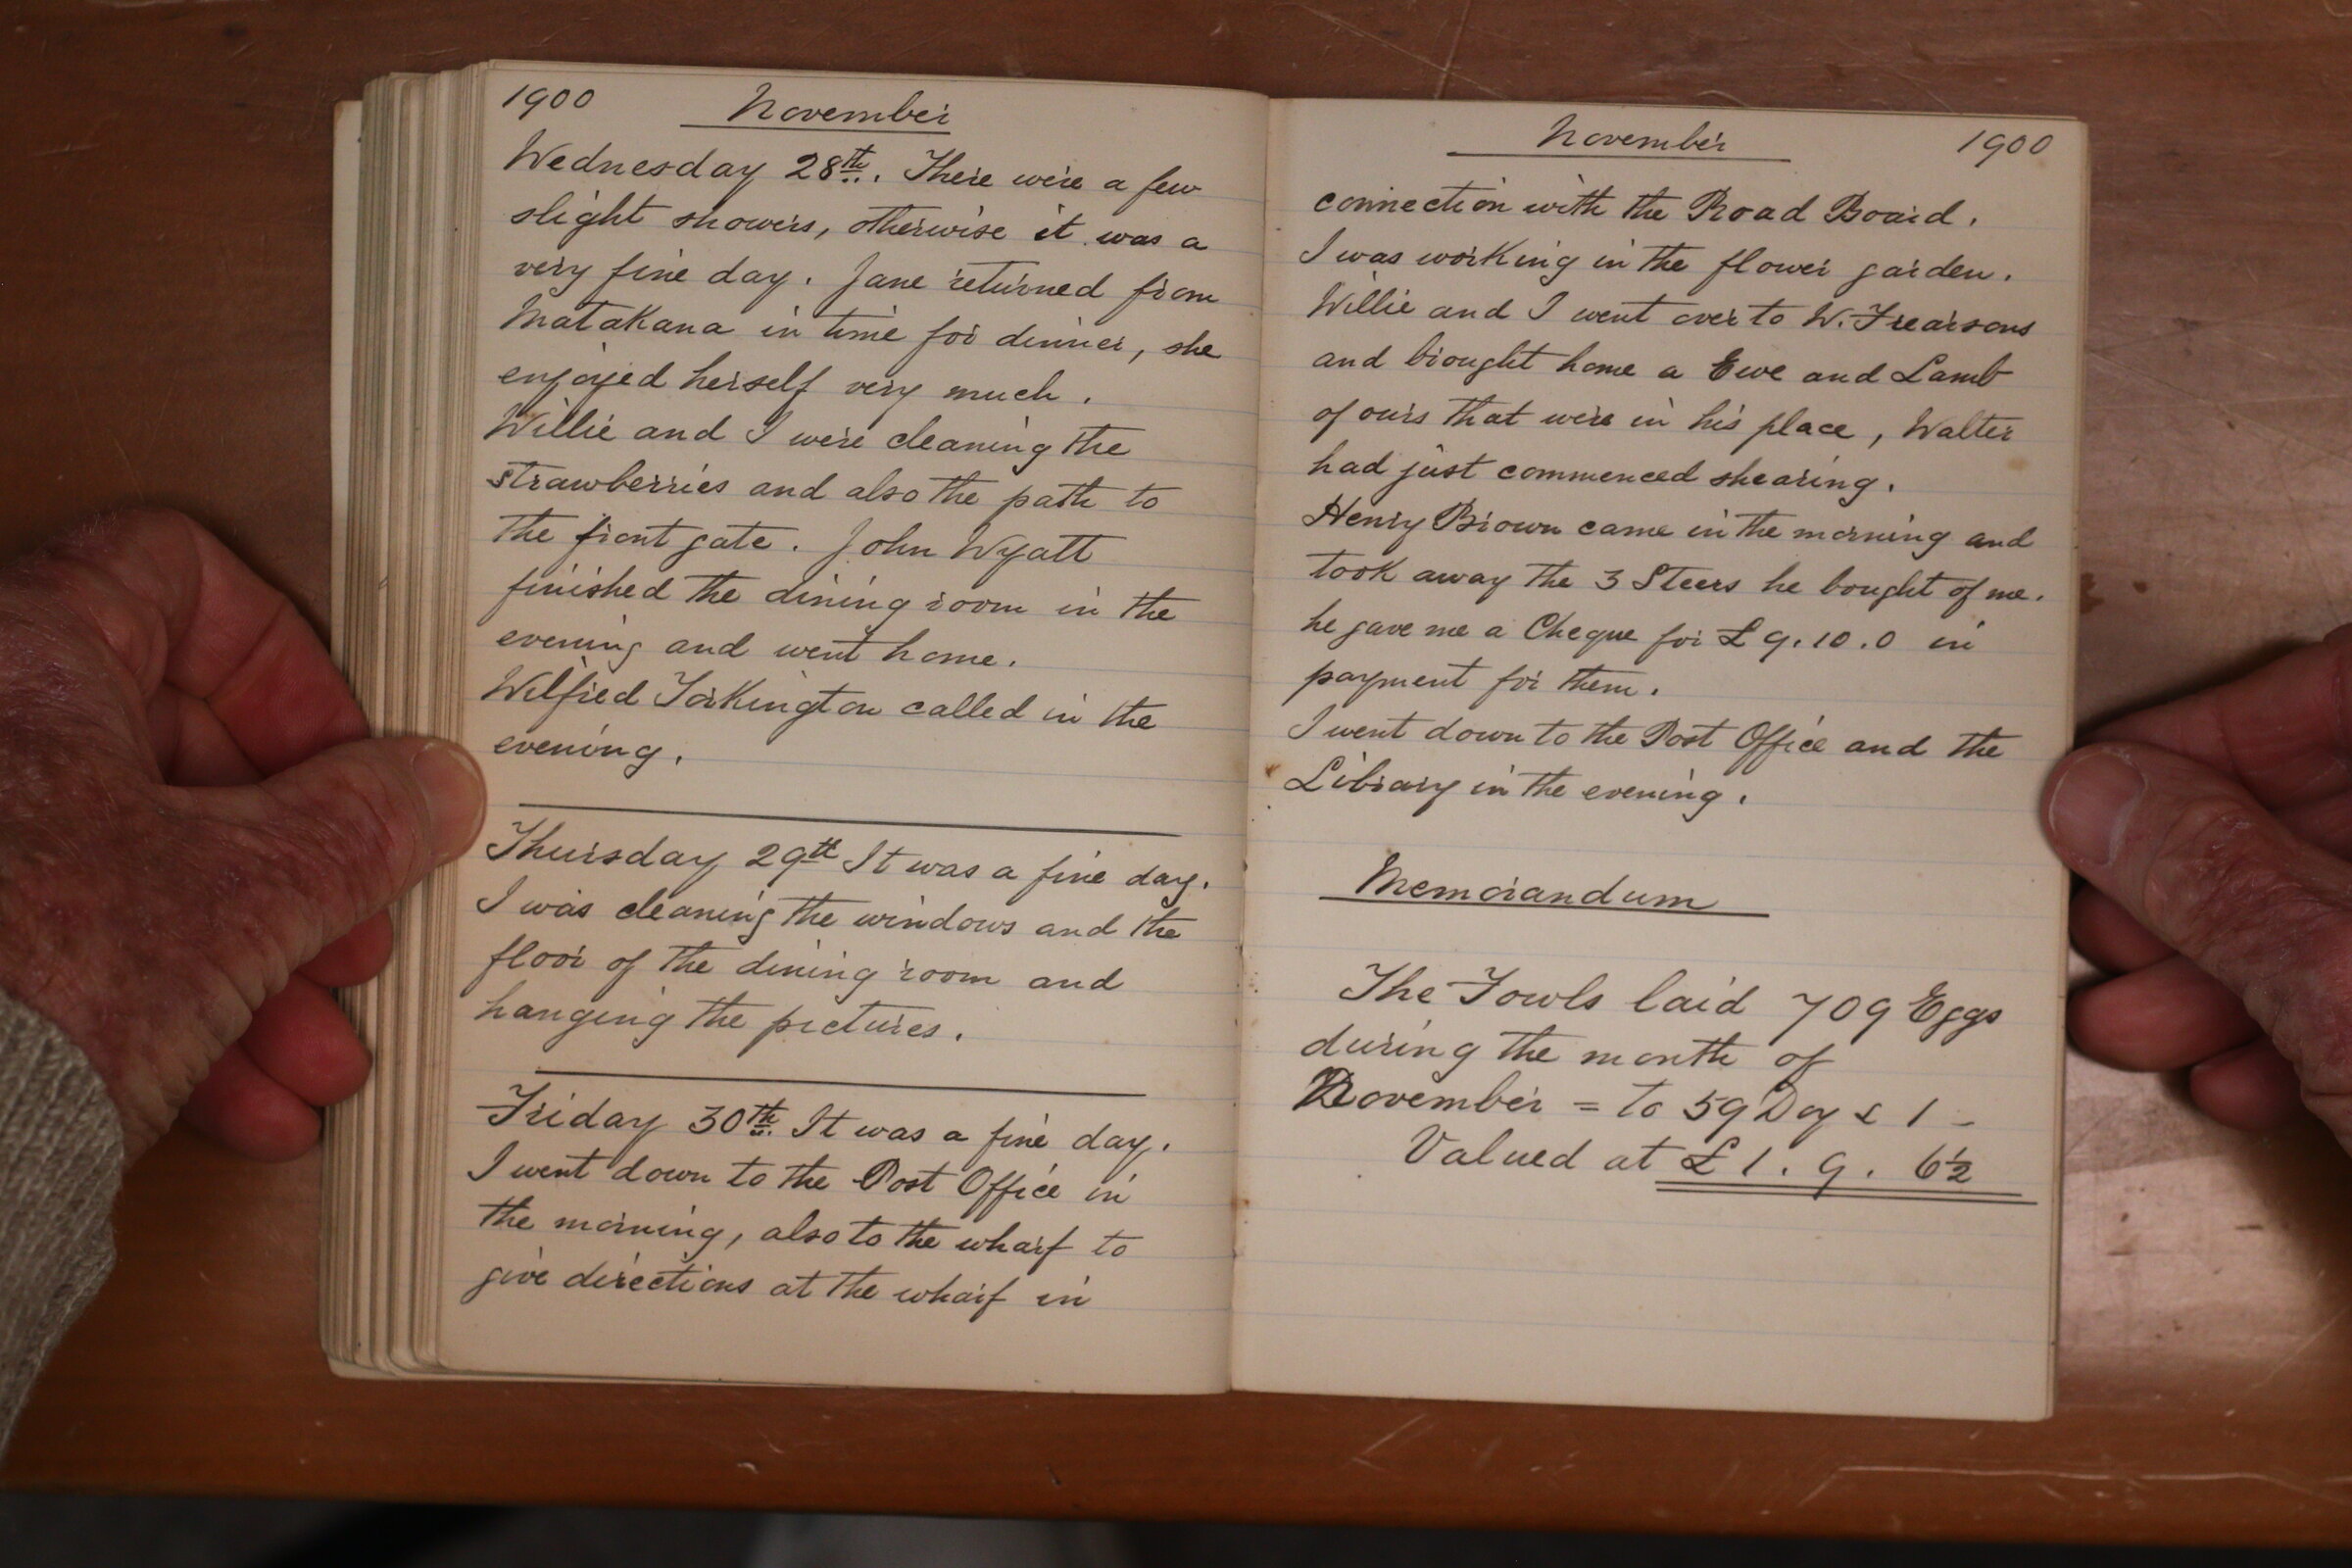 1900
November
Wednesday 28th. There were a few
slight showers, otherwise it was a
very fine day. Jane returned from
Matakana in time for dinner, she
enjoyed herself very much.
Willie and I were cleaning the
strawberries and also the path to
the front gate. John Wyatt
finished the dining room in the
evening and went home.
Wilfred Torkington called in the
evening.
Thursday 29th It was a fine day.
I was cleaning the windows and the
floor of the dining room and
hanging the pictures.
Friday 30th. It was a fine day.
I went down to the Post Office in
the morning, also to the wharf to
give directions at the wharf in
November 1900
connection with the Road Board.
I was working in the flower garden.
Willie and I went over to W. Frearsons
and brought home a Ewe and Lamb
of ours that were in his place, Walter
had just commenced shearing.
Henry Brown came in the morning and
took away the 3 Steers he bought of me.
he gave me a Cheque for £9.10.0 in
payment for them.
I went down to the Post Office and the
Library in the evening.
Memorandum
The Fowls laid 709 Eggs
during the month of
November = to 59 Doz & 1 -
Valued at £1. 9. 6½